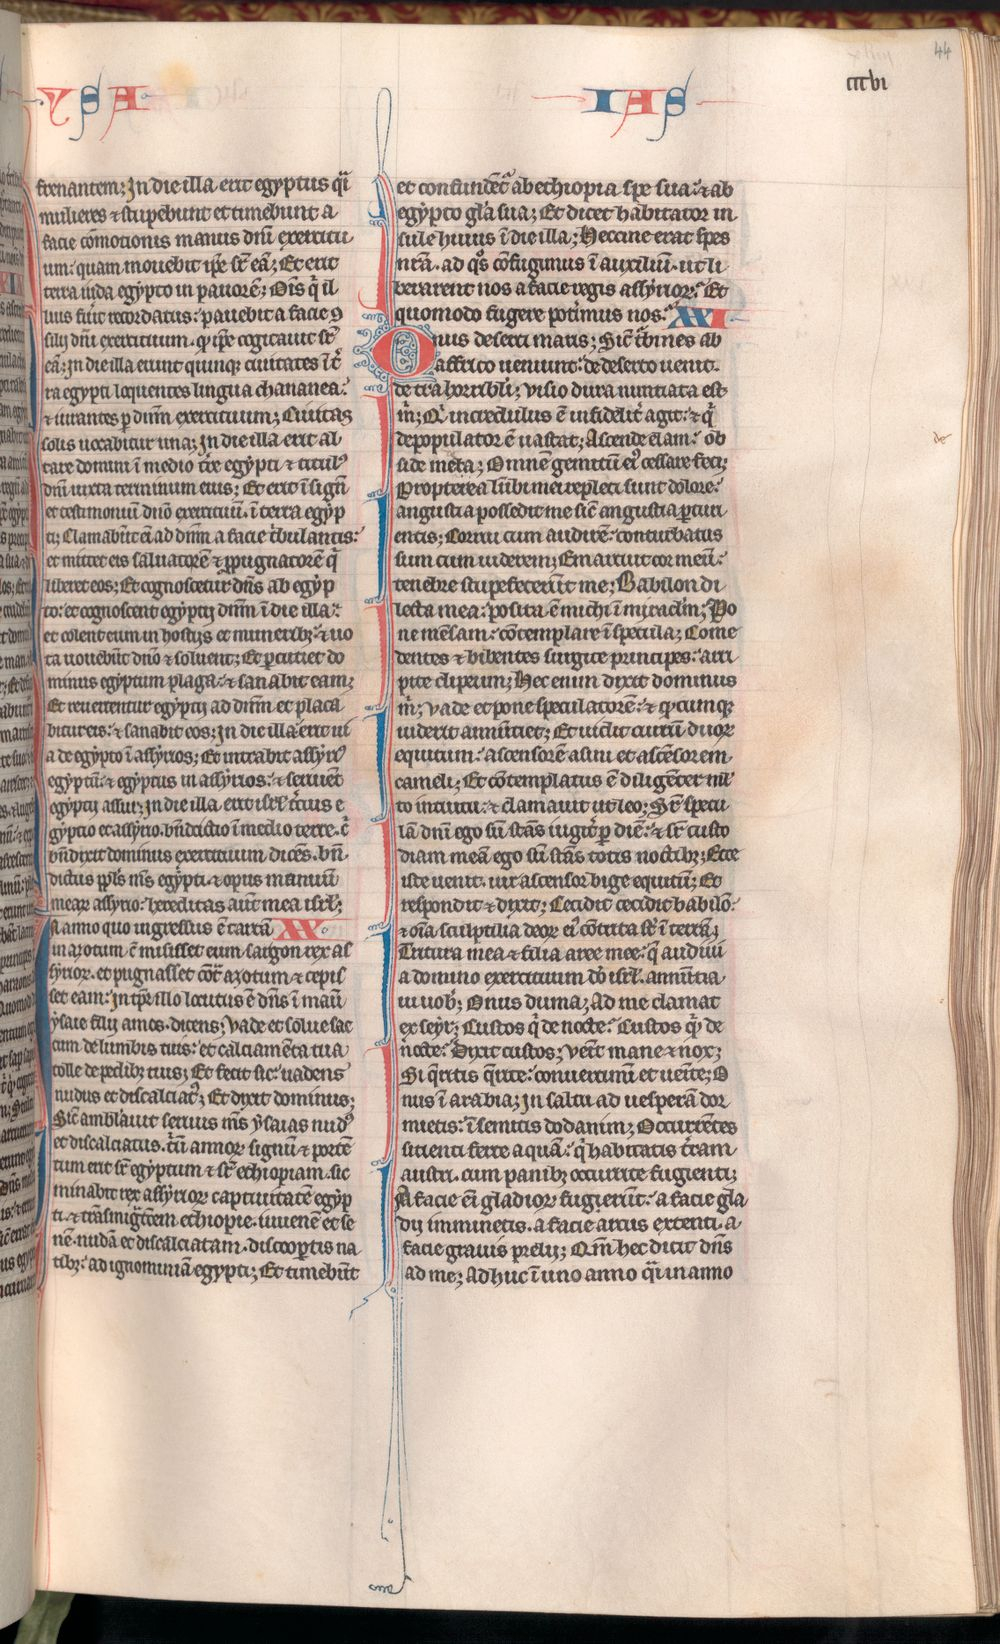 44
cccbi
YSA
IAS
frenantem; In die illa erit egyptus q̄i
mulieres ⁊ stupebunt et timebunt a
facie cōmotionis manus dn̄i exercitu
um· quam mouebit ip̄e sr̄ eā; Et erit
terra iuda egypto in pauorē; Oīs q̄ il
lius fūit recordatus· pauebit a facie 9
silij dn̄i exercituum· q̄ ip̄e cogitauit sr̄
eā; In die illa erunt quinq; ciuitates ī t̄
ra egypti loquentes lingua chananea·
⁊ iurantes p dn̄m exercituum; Ciuitas
solis uocabitur una; In die illa erit al
tare domini ī medio t̄re egypti ⁊ titul9
dn̄i iuxta terminum eius; Et erit ī signū
et testimoniū dn̄o exercituū· ī terra egyp
ti; Clamabūt eī ad dn̄m a facie t̄bulantis·
et mittet eis saluatorē ⁊ ꝓpugnatorē q̄
liberet eos; Et cognoscetur dn̄s ab egyp
to· et cognoscent egyptij dn̄m ī die illa·
et colent eum in hostijs et munerib;· ⁊ uo
ta uouebūt dn̄o ⁊ soluent; Et ꝑcutiet do
minus egyptum plaga· ⁊ sanabit eam;
Et reuertentur egyptij ad dn̄m et placa
bitur eis· ⁊ sanabit eos; In die illa erit ui
a de egypto ī assyrios; Et intrabit assyri9
egyptū· ⁊ egyptus in assyrios· ⁊ seruiēt
egyptij assur; In die illa erit isrl̄ t̄cius e
gyptio et assyrio· bn̄dictio ī medio terre· c̄
bn̄dixit dominus exercituum dicēs· bn̄
dictus ppl̄s ms̄ egypti· ⁊ opus manuū
meaꝝ assyrio· hereditas aut̄ mea isrl̄;
In anno quo ingressus ē tartā XX·
in azotum c̄ misisset eum sargon rex as
syrioꝝ· et pugnasset cōt̄ azotum ⁊ cepis
set eam· In tp̄r illo locutus ē dn̄s ī manū
ysaie filij amos· dicens; Vade et solue sac
cum de lumbis tuis· et calciamēta tua
tolle de pedib; tuis; Et fecit sic· uadens
nudus et discalciat9; Et dixit dominus;
Sic̄ amblauit seruus ms̄ ysaias nud9
et discalciatus· t̄ū annoꝝ signū ⁊ portē
tum erit sr̄ egyptum ⁊ sr̄ ethiopiam· sic
minabit rex assyrioꝝ captiuitatē egyp
ti· ⁊ trāsmigr̄cem ethiopie· iuuenē et se
nē· nudā et discalciatam· discoopertis na
tib;· ad ignominiā egypti; Et timebūt
et confundēt̄ ab ethiopia spe sua· ⁊ ab
egypto gl̄a sua; Et dicet habitator in
sule huius ī die illa; Heccine erat spes
nr̄a· ad q̄s cōfugimus ī auxiliū· ut li
berarent nos a facie regis assyrioꝝ· Et
quomodo fugere poterimus nos; XXI
Onus deserti maris; Sic̄ t̄bines ab
affrico ueniunt· de deserto uenit·
de t̄ra horribili; visio dura nuntiata est
m̄; Q̄ incredulus ē infidelit̄ agit· ⁊ q̄
depopulator ē uastat; Ascende elam· ob
side meta; Omnē gemitū ei9 cessare feci;
Propterea lūbi mei repleti sunt dolore·
angustia possedit me sic̄ angustia ꝑturi
entis; Corrui cum audirē· conturbatus
sum cum uiderem; Emarcuit cor meū·
tenebre stupefecerūt me; Babilon di
lecta mea· posita ē michi ī miraclm̄; Po
ne mēsam· cōtemplare ī specula; Come
dentes ⁊ bibentes surgite principes· arri
pite clipeum; Hec enim dixit dominus
m̄; vade et pone speculatorē· ⁊ q̄cumq;
uiderit annūtiet; Et uidit currū duoꝝ
equitum· ascensorē asini et ascēsorem
cameli; Et cōtemplatus ē diligēter ml̄
to intuitu· ⁊ clamauit ut leo; Sr̄ specu
lā dn̄i ego sū stās iugit̄ p diē· ⁊ sr̄ custo
diam meā ego sū stās totis noctib; Ecce
iste uenit· uir ascensor bige equitū; Et
respondit ⁊ dixit; Cecidit cecidit babilō·
⁊ oīa sculptilia deoꝝ ei9 cōtrita sr̄ ī terrā;
Tritura mea ⁊ filia aree mee· q̄ audiui
a domino exercituum do isrl̄· annūtia
ui uob̄; Onus duma; Ad me clamat
ex seyr; Custos q̄ de nocte· Custos q̄ de
nocte· Dixit custos; venit mane ⁊ nox;
Si q̄ritis q̄rite· conuertimī et ueīte; O
nus ī arabia; In saltu ad uesperā dor
mietis· ī semitis dodanim; Occurrētes
sitienti ferte aquā· q̄ habitatis t̄ram
austri· cum panib; occurrite fugienti;
A facie eī gladioꝝ fugierūt· a facie gla
dij imminētis· a facie arcus extenti· a
facie grauis prelij; Qm̄ hec dicit dn̄s
ad me; Adhuc ī uno anno q̄i in anno
de